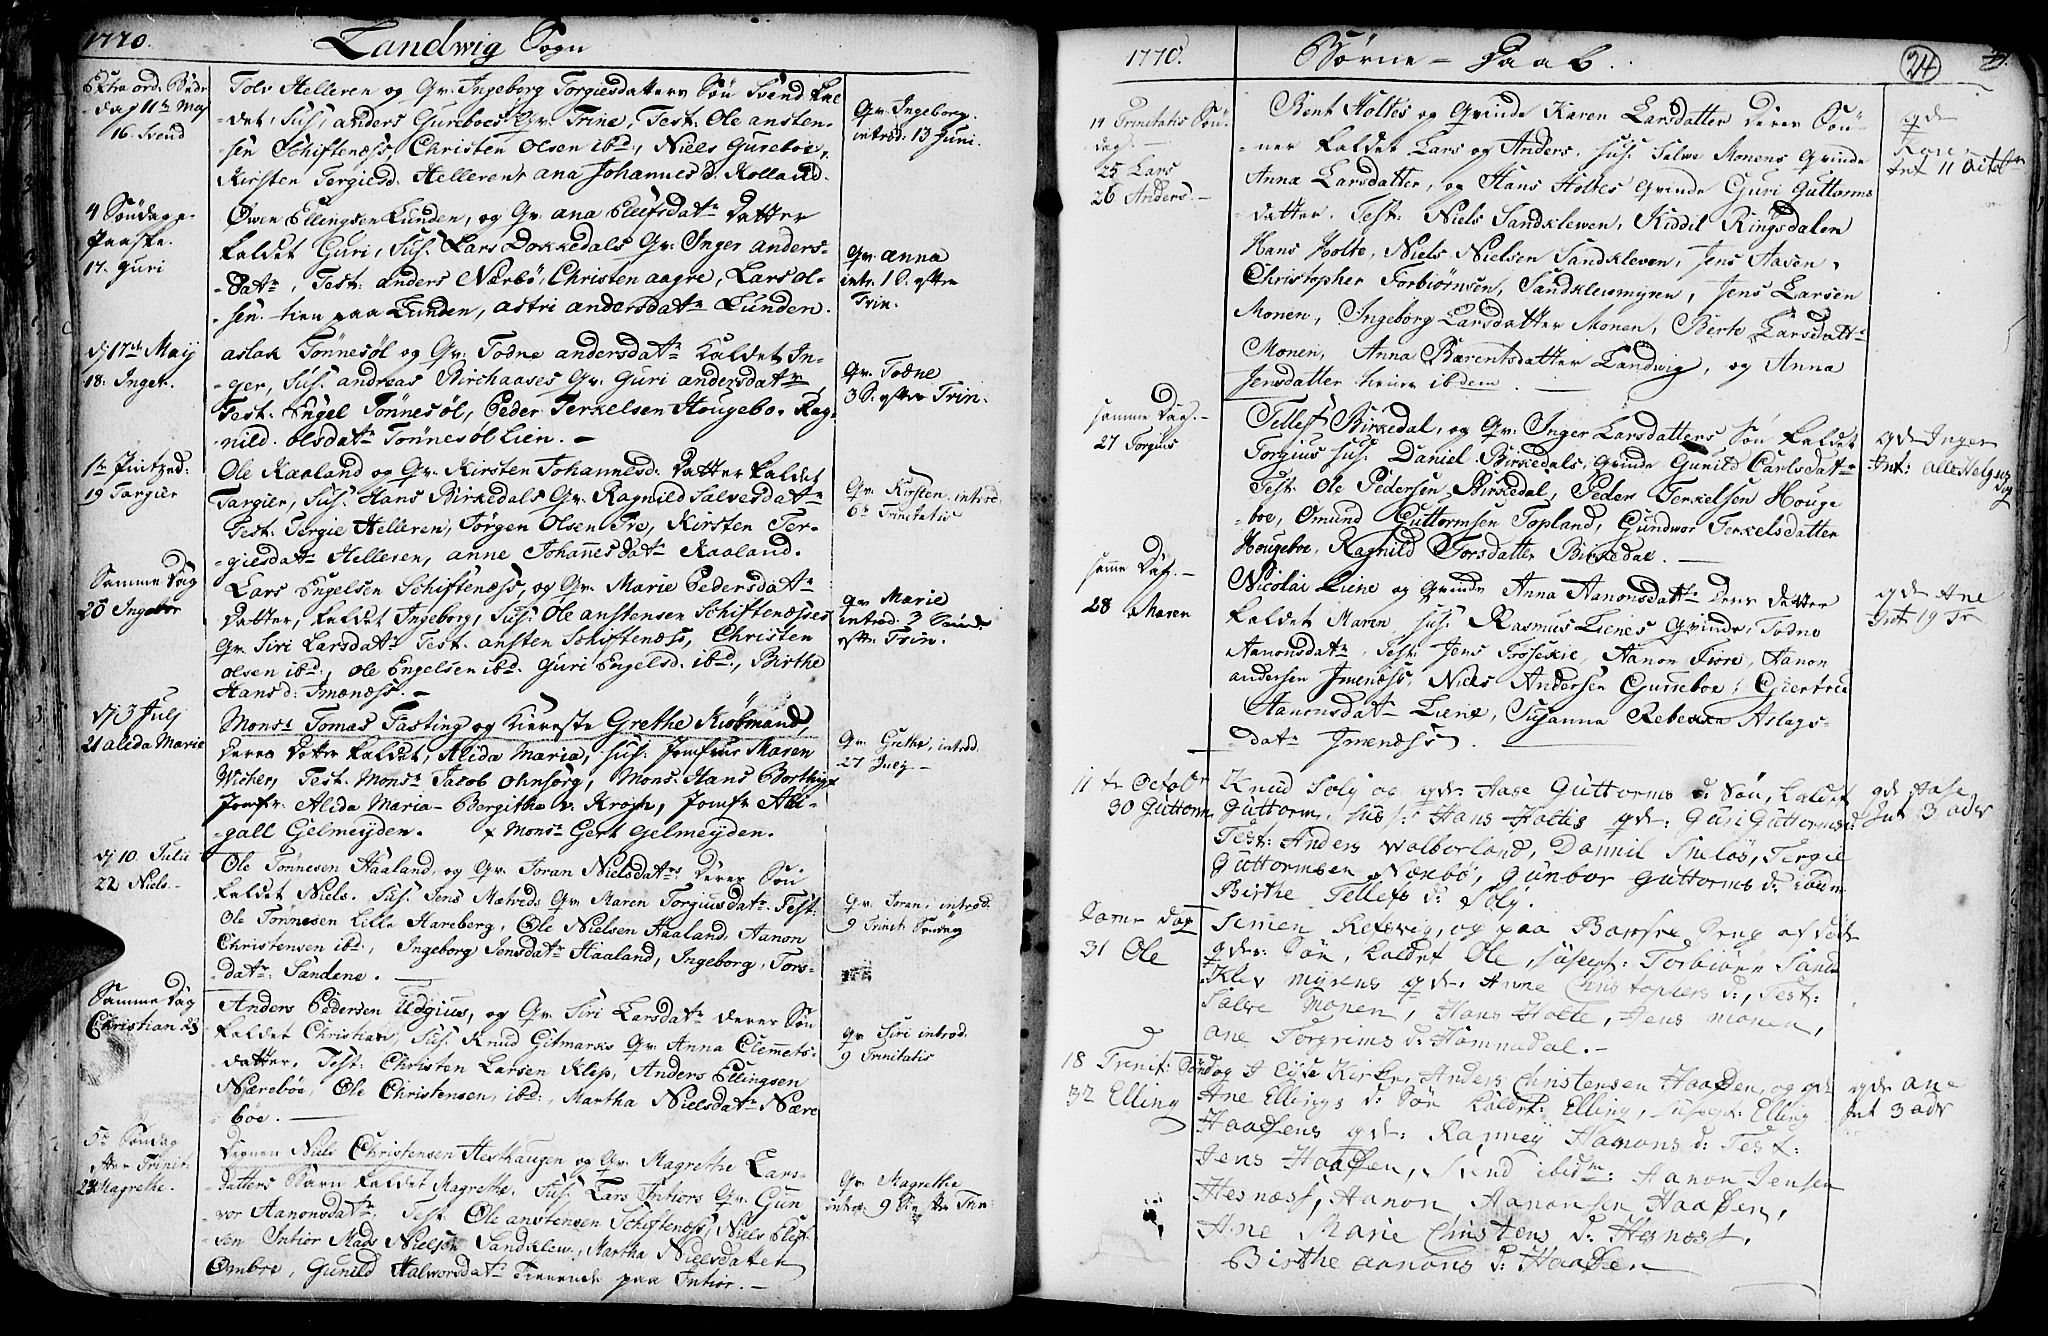 1770.
Landwig Sogn
Extra ord. Bede
dag 11te May
16. Svend
Tolv Helleren og Qv. Ingeborg Torgiesdatters Søn Svend kal
det, Sus: anders Gureboes Qv. Trine, Test: Ole ansten-
sen Schiftenæss, Christen Olsen ibd:, Niels Gureboe,
Kirsten Tergiesd. Helleren, ana Johannesd. Rolland.
Qv. Ingeborg.
introd: 13 Juni.
4 Søndag p.
Paaske.
17. Guri
Öven Ellingsen Lunden, og Qv. ana Elefsdatr Datter
kaldet Guri, Sus. Lars Dokkedals Qv. Inger anders-
datr, Test: anders Nærbö, Christen aagre, Lars ol-
sen. tien paa Lunden, astri andersdatr Lunden.
Qv. anna
intr. 1 S. efter
Trin.
d. 17de Maij
18. Inger.
aslak Tönnesöl og Qv. Todne andersdatr kaldet In-
ger, Sus. andreas Birchaases Qv. Guri andersdatr,
Test: Engel Tönnesöl, Peder Terkelsen Hougebo, Rag-
nild olsdatr Tönnesöl Lien.
Qv. Todne
3 S. efter Trin.
1te Pintzed:
19 Targier
Ole Raaland og Qv. Kirsten Johannesd. Datter kaldet
Targier, Sus. Hans Birkedals Qv. Ragnild Salvesdatr
Test: Tergie Helleren, Jörgen Olsen Tre, Kirsten Ter-
giesdatr Helleren, anne Johannesdatr Raaland.
Qv. Kirsten introd.
6te Trinitatis
Samme Dag
20 Ingebor
Lars Engelsen Schiftenæss, og Qv. Marie Pedersdatr
Datter, kaldet Ingeborg, Sus: Ole anstensen Schiftenæsses
Qv. Siri Larsdatr Test. ansten Schiftenæss, Christen
olsen ibd:, ole Engelsen ibd. Guri Engelsd. ibd:, Birthe
Hansd: Imenæss.
Qv. Marie
introd. 3 Sönd.
eftr. Trin.
d. 3 Julj
21 alida Marie
Monsr Tomas Fasting og Kiereste Grethe Kiöbmand,
deres Datter kaldet, Alida Maria, sus: Jomfrue Maren
Wicher, Test: Monsr Jacob Ohnsorg, Mons: Hans Borthig
Jomfr. Alida Maria Bergitha v. Krogh, Jomfr Abi-
gall Gelmeyden. x Monsr Gert Gelmeyden.
Qv. Grethe, introd.
27 July
d. 10. Julii
22 Niels.
Ole Tönnesen Haaland, og Qv. Joran Nielsdatrs Deres Sön
kaldet Niels. Sus. Jens Mælvids Qv. Maren Torgiusdatr. Test:
Ole Tönnesen Lille Hareberg, Ole Nielsen Haaland, Aanon
Christensen ibd:, Ingeborg Jensdatr Haaland, Ingeborg Tors-
datr: Sandene.
Qv. Joran, introd.
9 Trinit. Söndag
Samme Dag
Christian 23
Anders Pedersen Udgius, og Qv. Siri Larsdatr deres Sön
kaldet Christian, Sus. Knud Gitmarks Qv. Anna Clemets-
datter, Test: Christen Larsen Klep, Anders Ellingsen
Næreböe, Ole Christensen, ibd:, Martha Nielsdatr Nære
boe.
Qv. Siri introd.
9 Trinitatis
5te Söndag
efter Trinit.
24 Magrethe.
Degnen Niels Christensen Hesthaugen og Qv. Magrethe Lars-
datters Barn kaldet Magrethe. Sus. Lars Intiors Qv. Gun
vor Aanonsdatr. Test: Ole anstensen Schiftenæss, Niels Elef-
sen Intior, Mads Nielsen Sandklev, Martha Nielsdatter
Ombre, Gunild Halvorsdatr tienende paa Intior.
Qv. Magrethe
introd: 9 S. efter Trin:
1770.
Börne-Daab.
24
14 Trinitatis Sön-
dag.
25 Lars
26 Anders.
Bent Holtes og Qvinde Karen Larsdatter deres Sön-
ner kaldet Lars og Anders. sus. Salve Monens Qvinde
Anna Larsdatter, og Hans Holtes Qvinde Guri Guttorms
datter. Test: Niels Sandklewen, Kiddil Ringsdalen
Hans Holte, Niels Nielsen Sandkleven, Jens Aasen,
Christopher Torbiörnsen, Sandklewmyren, Jens Larsen
Monen, Ingeborg Larsdatter Monen, Berte Larsdatt-
Monen, Anna Bærentsdatter Landvig, og Anna
Jensdatter ibidem.
qde
Karen
Int 11 octobr
samme Dag.
27 Torgius
Tellef Birkedal, og Qv: Inger Larsdatters Søn kaldet
Torgius sus: Daniel Birkedals, Qvinde Gunild Carlsdatr
Test. Ole Pedersen Birkedal, Peder Terkelsen Houge
boe, Omund Guttormsen Topland, Gundwor Terkelsdatter
Hougeboe, Ragnild Torsdatter Birkedal.
qde Inger
Int: alle Helgens
dag
samme Dag.
28 Maren
Nicolai Liene og Qvinde Anna Aanonsdattr deres Datter
kaldet Maren sus: Rasmus Lienes Qvinde, Todne
Aanonsdatr, Test: Jens Froseie, Aanon Fiere, Aanon
andersen Imenæss, Niels Andersen Gurreboe, Giertrud
Aanonsdatr Liene, Susanna Rebekka Aslags-
datr Imenæss.
qde Ane
Int 19 Tr
11te Octobr
30 Guttorm
Knud Solg og qde: Aase Guttorms d: Søn, kaldet
Guttorm, suss: Hans Holtes qde: Guri Guttorms d:
Test: Anders Walborland, Daniil Fneløs, Tergie
Guttormsen Næxbö, Gunbor Guttorms d: ibidm.
Birthe Tellefs d: Solg.
qde Aase
Int 3 adv
Same dag
31 Ole
Simen Refsvig, og paa Barsel Seng afdøde
qdes: Søn, kaldet Ole, suscept: Torbiörn Sand
Klev myrens qde: Anne Christophers d:, Test:
Salve Monen, Hans Holte, Jens Monen,
Ane Torgrims d: Hommedal.
18 Trinit: Söndag
32 Elling
I Eyde Kirke, Anders Christensen Haaßen, og qde
Ane Ellings d: Søn kaldet: Elling, suscept: Elling
Haaßens qde: Ranneij Hanons d: Test:
Jens Haaßen, Svend ibidm: Aanon Jensen
Hesnæss, Aanon Aanonsen Haaßen,
Ane Marie Christens d: Hesnæss,
Birthe aanons d: Haaßen
qde ane
Int 3 adv